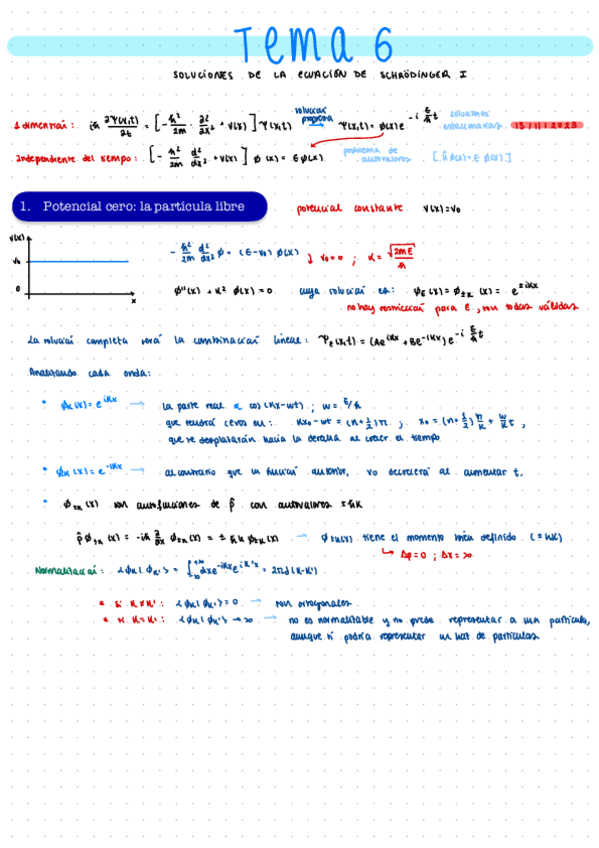 Tema 6
SOLUCIONES DE LA ECUACIÓN DE SCHRÖDINGER I
1 dimensión: iħ ∂Ψ(x,t)/∂t = [-ħ²/2m · ∂²/∂x² + V(x)] Ψ(x,t) solución propuesta → Ψ(x,t) = ϕ(x) e^(-i E/ħ t) soluciones estacionarias 13/11/2023
Independiente del tiempo: [-ħ²/2m d²/dx² + V(x)] ϕ(x) = E ϕ(x) problema de autovalores [Ĥ ϕ(x) = E ϕ(x)]
1. Potencial cero: la partícula libre potencial constante V(x)=V₀
V(x)
V₀
0
x
-ħ²/2m d²/dx² ϕ = (E-V₀) ϕ(x) V₀=0 ; K = √2mE/ħ
ϕ''(x) + K² ϕ(x) = 0 cuya solución es: ϕ_E(x) = ϕ_±K(x) = e^(±iKx)
no hay restricción para E, son todas válidas
La solución completa será la combinación lineal: Ψ_E(x,t) = (Ae^(iKx) + Be^(-iKx)) e^(-i E/ħ t)
Analizando cada onda:
• ϕ_K(x) = e^(iKx) → la parte real α cos(Kx-wt) ; w = E/ħ
que tendrá ceros en: Kx₀ - wt = (n+1/2)π ; x₀ = (n+1/2) π/K + w/K t ,
que se desplazarán hacia la derecha al crecer el tiempo
• ϕ_K(x) = e^(-iKx) → al contrario que la función anterior, x₀ decrecerá al aumentar t.
• ϕ_±K(x) son autofunciones de p̂ con autovalores ±ħK
p̂ ϕ_±K(x) = -iħ ∂/∂x ϕ_±K(x) = ± ħK ϕ_±K(x) → ϕ_±K(x) tiene el momento bien definido (±ħK)
↳ Δp=0 ; Δx=∞
Normalización: <ϕ_K | ϕ_K'> = ∫_-∞^+∞ dx e^(-iKx) e^(iK'x) = 2πδ(K-K')
• si K≠K': <ϕ_K | ϕ_K'> = 0 → son ortogonales
• si K=K': <ϕ_K | ϕ_K'> → ∞ → no es normalizable y no puede representar a una partícula,
aunque sí podría representar un haz de partículas